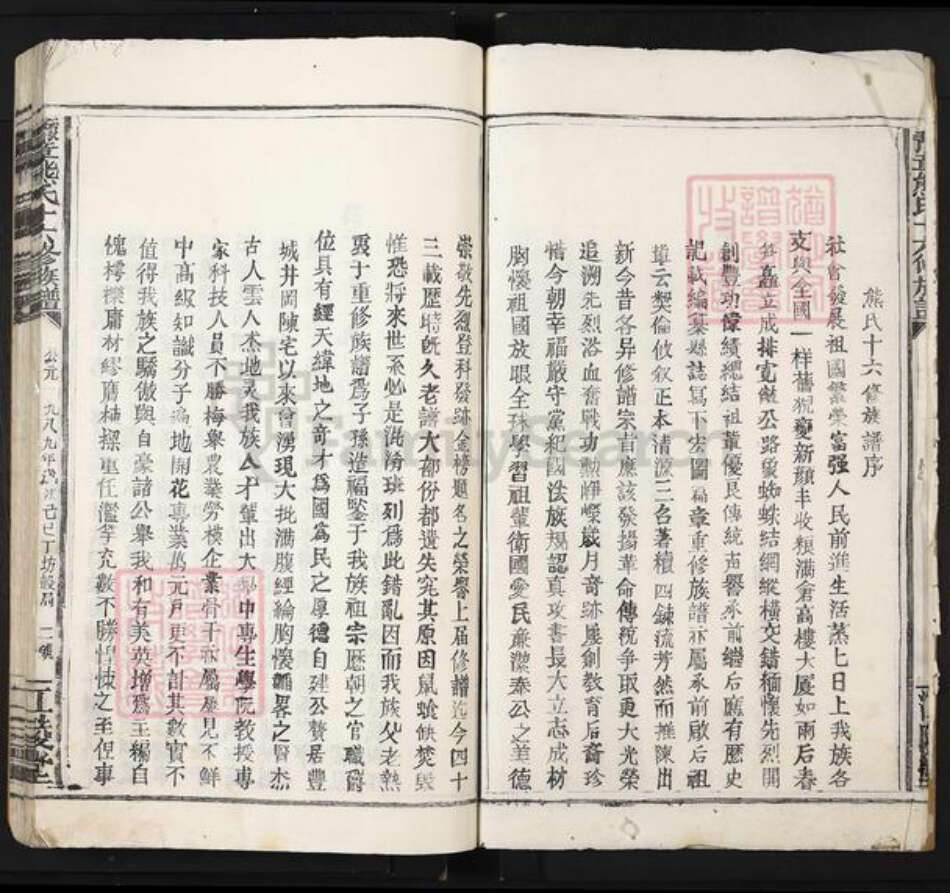 熊氏十六修族譜序
社會發展祖國繁榮富强人民前進生活蒸上日上我族各
支與全國一樣舊貌變新顔丰收粮滿倉高樓大厦如雨后春
笋矗立成排寬敞公路象蜘蛛結網縱横交錯緬懷先烈開
創豐功偉績總結祖輩優良傳統声譽承前繼后應有歷史
記載編纂縣誌寫下宏圖篇章重修族譜亦屬承前啟后祖
章云契倫攸叙正本清源三名著積四鍊流芳然而推陳出
新今昔各异修譜宗旨應該發揚革命傳統争取更大光榮
追溯先烈浴血奮戰功勳崢嶸歲月奇跡屢創教育后裔珍
惜今朝幸福嚴守黨和國法族規認真攻書長大立志成材
胸懷祖國放眼全球學習祖輩衛國愛民廉潔奉公之美德
崇敬先烈登科發跡金榜題名之榮譽上届修譜迄今四十
三載歷時既久老譜大部份都遺失究其原因鼠蝕蚨焚毁
惟恐將來世系必是混淆班列爲此錯亂因而我族父老熱
衷于重修族譜爲子孫造福鑒于我族祖宗歷朝之官職爵
位具有經天緯地之奇才爲國爲民之厚德自建公贅居豐
城井岡陳宅以來曾湧現大批滿腹經綸胸懷韜畧之賢杰
古人雲人杰地灵我族人才輩出大和中專生學院教授專
家科技人員不勝梅舉農業勞模企業骨干亦屬屢見不鮮
中高級知識分子遍地開花專業萬元戶更不計其數實不
值得我族之驕傲與自豪諸公舉我和有美英增爲主編自
愧樗櫟庸材繆膺樋操重任濫竽充數不勝惶悚之至俱事
FamilySearch